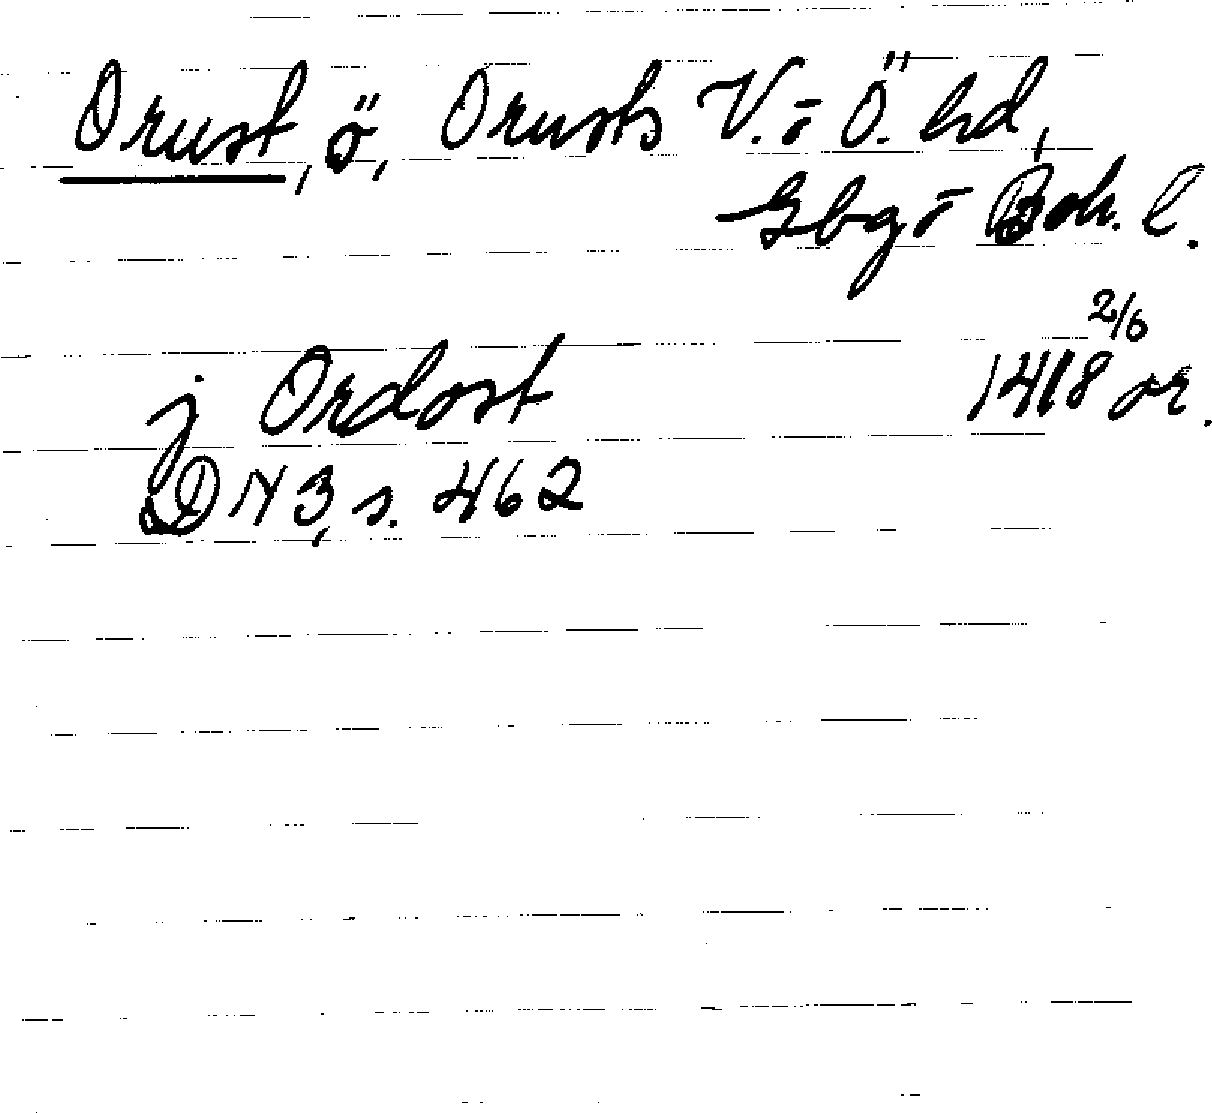 Orust, ö, Orusts V. o Ö. hd,
Gbg o Boh. l.
j Ordost 2/6 1418 or.
DN 3, s. 462